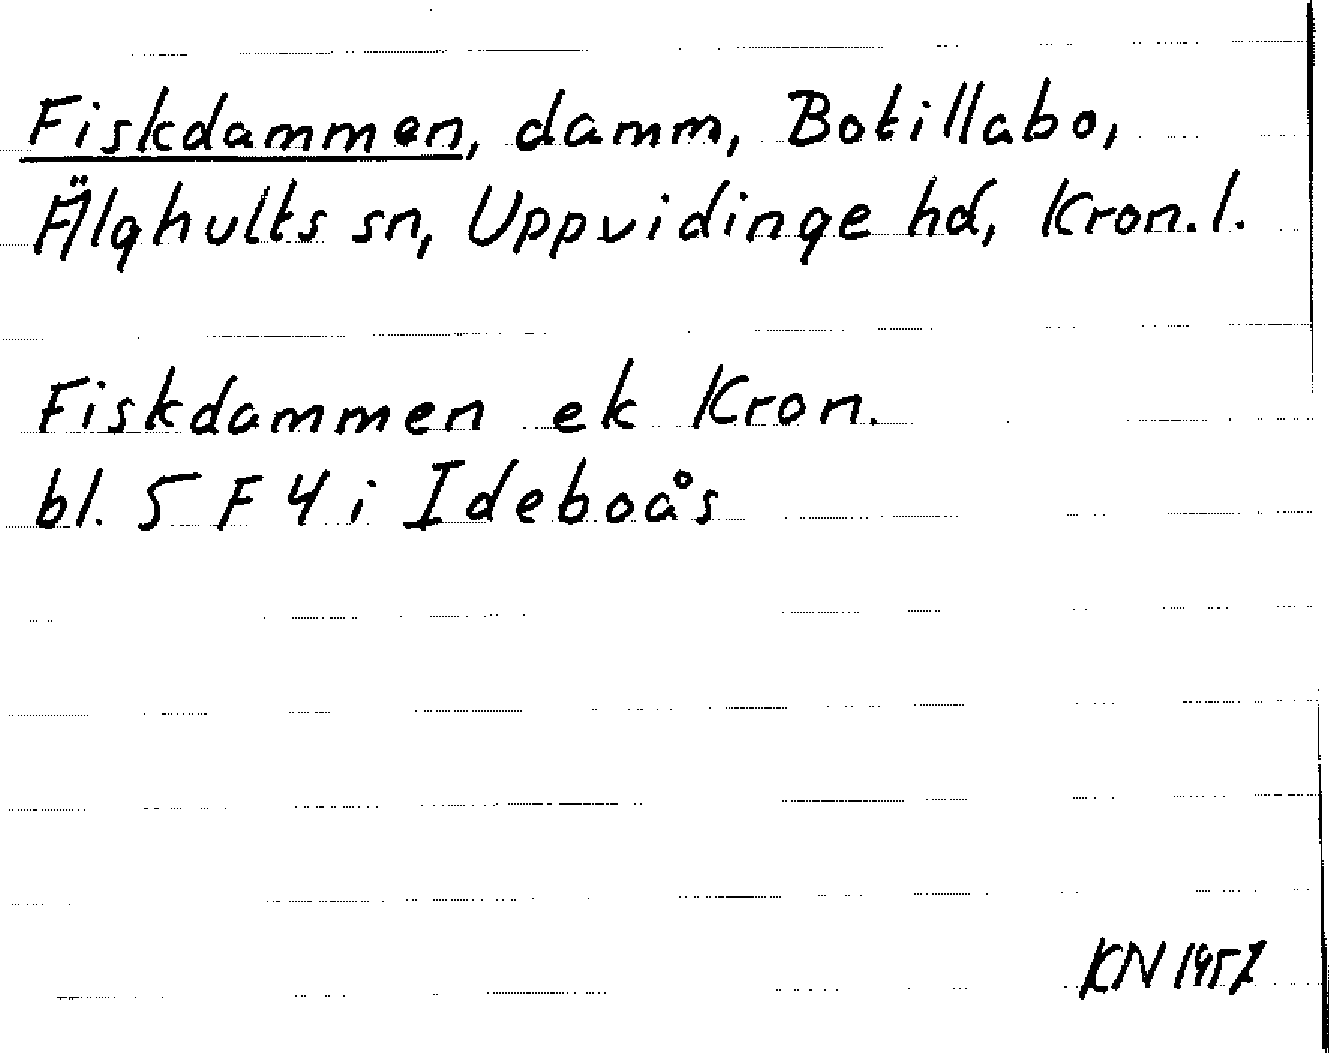 Fiskdammen, damm, Botillabo,
Älghults sn, Uppvidinge hd, Kron. l.
Fiskdammen ek Kron.
bl. 5 F 4 i Ideboås
KN 1957